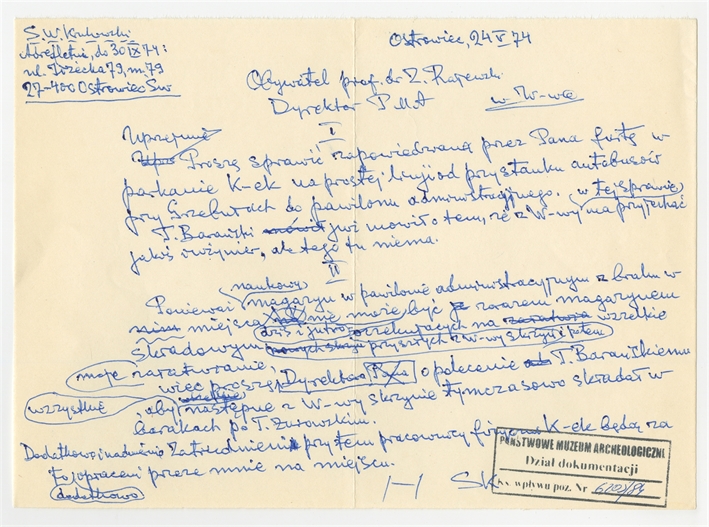 S. W. Krukowski
Adres letni, do 30 IX 74:
ul. Iłżecka 79, m. 79
27-400 Ostrowiec Św
Ostrowiec, 24 V 74
Obywatel prof. dr Z. Rajewski
Dyrektor PMA
w W-wie
I
Uprzejmie
Proszę sprawić zapowiedzianą przez Pana furtę w
parkanie K-ek na prostej linji od przystanku autobusów
przy Grzebułach do pawilonu administracyjnego. w tej sprawie
T. Barański już mówił o tem, że z W-wy ma przyjechać
jakiś inżynier, ale tego tu niema.
II
naukowy
Ponieważ magazyn w pawilonie administracyjnym z braku w
nim miejsca nie może być zarazem magazynem
dziś i jutro oczekujących na wszelkie
składowym nowych skrzyń przyszłych z W-wy skrzyń i potem
moje narażowanie,
więc proszę Dyrektora o polecenie T. Barańskiemu
wszystkie
, aby następne z W-wy skrzynie tymczasowo składał w
barakach po T. Żurowskim.
Dodatkowo Zatrudnieni przytem pracownicy fizyczni K-ek będą za
to opłaceni przeze mnie na miejscu.
dodatkowo
SK
PAŃSTWOWE MUZEUM ARCHEOLOGICZNE
Dział dokumentacji
Ks. wpływu poz. Nr